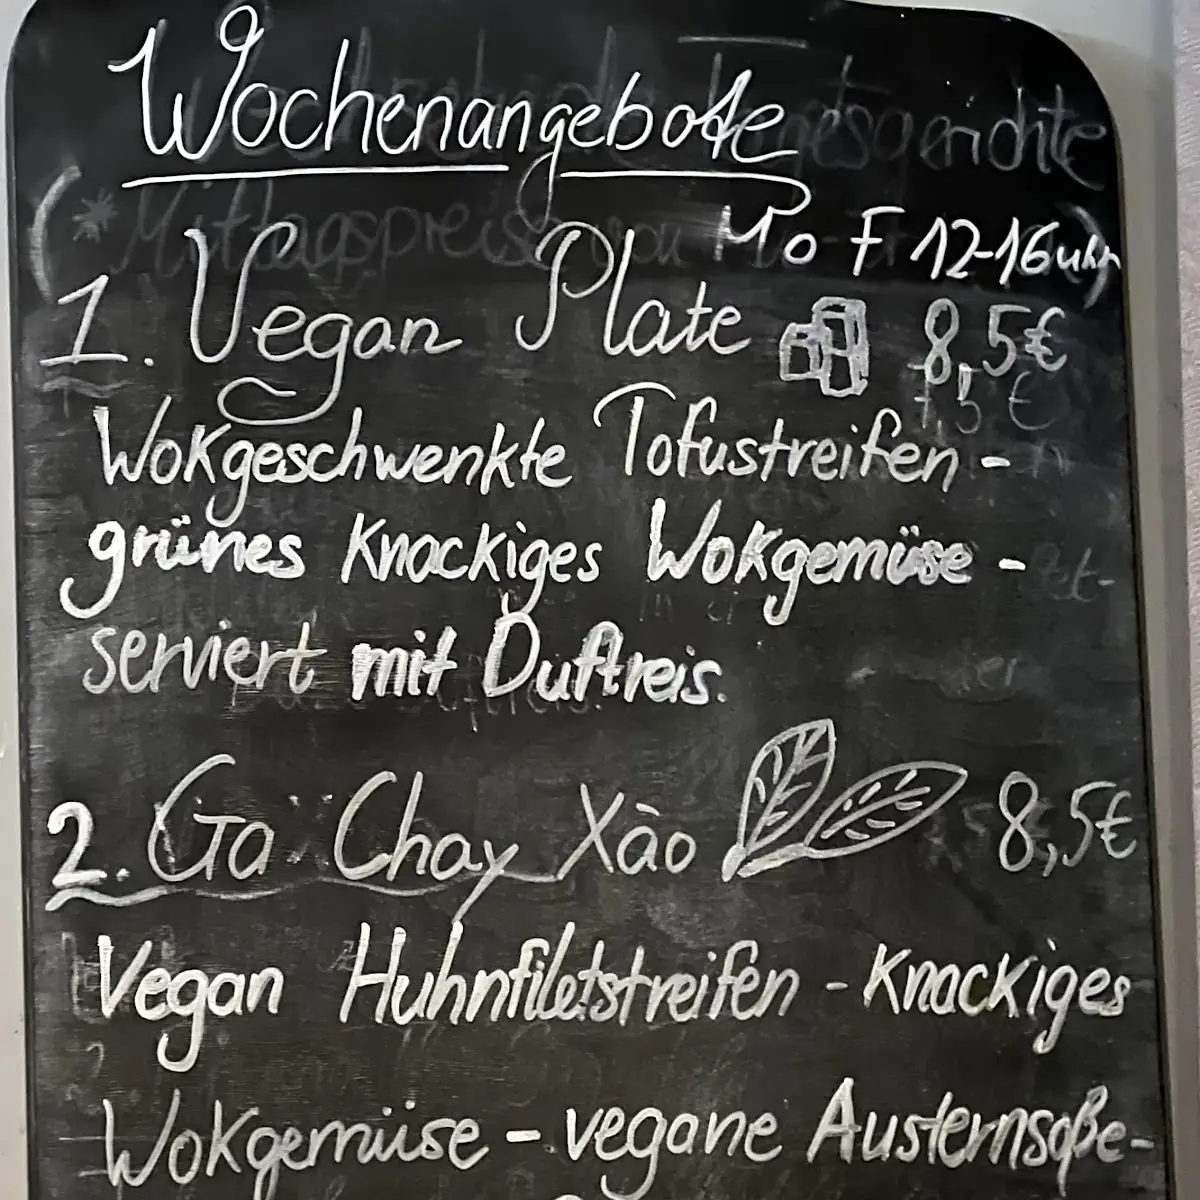 Wochenangebote
Mo F 12-16uhr)
1. Vegan Plate 8,5€
Wokgeschwenkte Tofustreifen -
grünes Knackiges Wokgemüse -
serviert mit Duftreis.
2. Ga Chay Xào 8,5€
Vegan Huhnfiletstreifen - Knackiges
Wokgemüse - vegane Austernsoße-